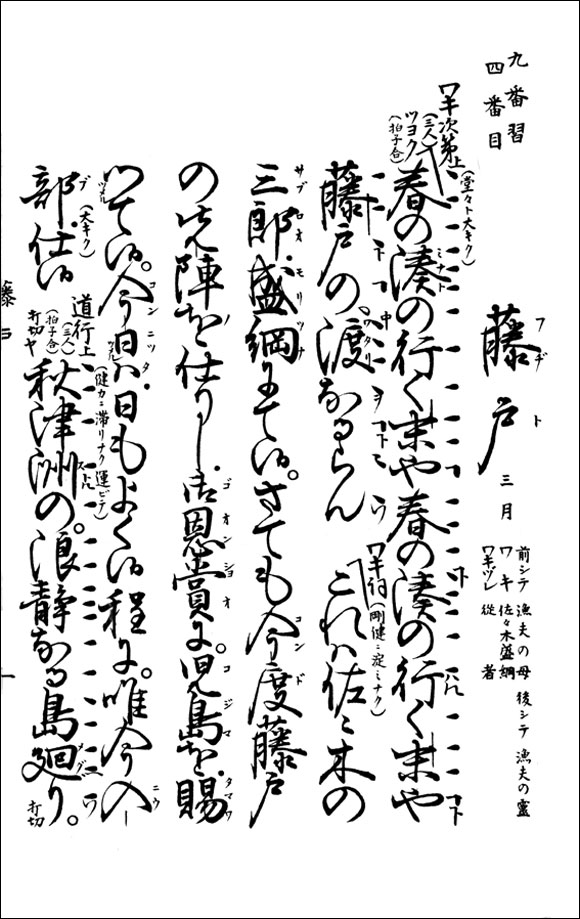 九番習
四番目
藤戸 三月
フヂト
前シテ 漁夫の母 後シテ 漁夫の霊
ワキ 佐々木盛綱
ワキツレ 従者
ワキ次第上(堂々ト大キク)
(三人)
ツヨク
(拍子合)
春の湊の行く末や春の湊の行く末や
藤戸の。渡なるらん
ワキ詞(剛健ニ淀ミナク)
これハ佐々木の
三郎。盛綱にて候。さても今度藤戸
の先陣を仕りし。御恩賞に。児島を。賜
つて候。今日ハ日もよく候程に。唯今入
部。仕候
(大キク)
道行上
(三人)
(拍子合)
打切ヤ
(健カニ滞リナク運ビテ)
秋津洲の。浪静なる島廻り。
打切
藤戸
一